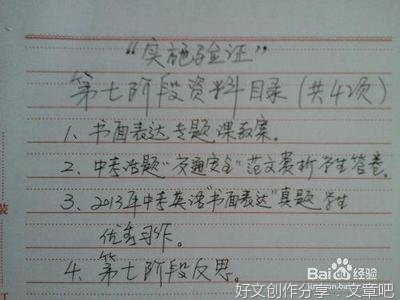 “实施验证”
第七阶段资料目录(共4项)
1、书面表达专题课教案。
2、中考话题“交通安全”范文赏析学生答卷。
3、2013年中考英语“书面表达”真题学生
优秀习作。
4、第七阶段反思。
装
Baidu 经验
jingyan.baidu.com
好文创作分享-文章吧